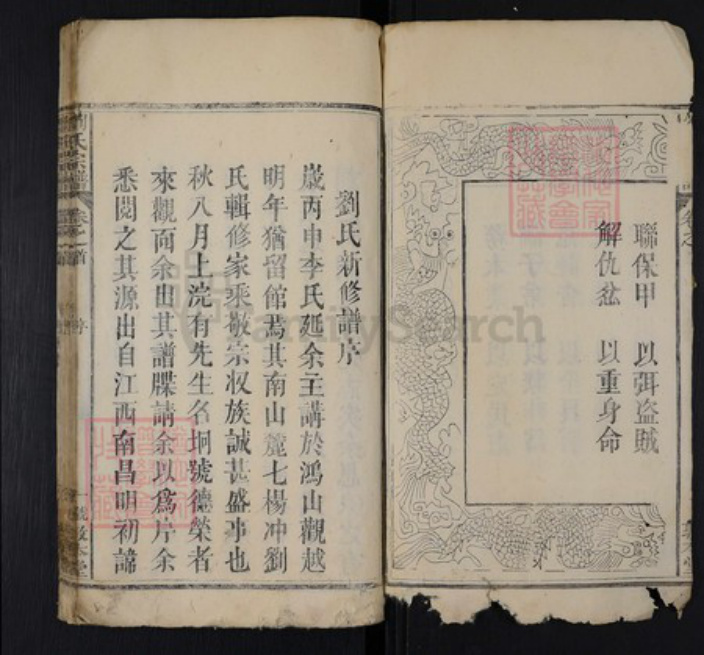 聯保甲 以弭盜賊
解仇忿 以重身命
劉氏新修譜序
歲丙申李氏延余主講於鴻山觀越
明年猶留館焉其南山麓七楊冲劉
氏輯修家乘敬宗収族誠甚盛事也
秋八月上浣有先生名坰號德榮者
來觀面余出其譜牒請余以為序余
悉閱之其源出自江西南昌明初諱
劉氏宗譜
卷之首
敦本堂
FamilySearch